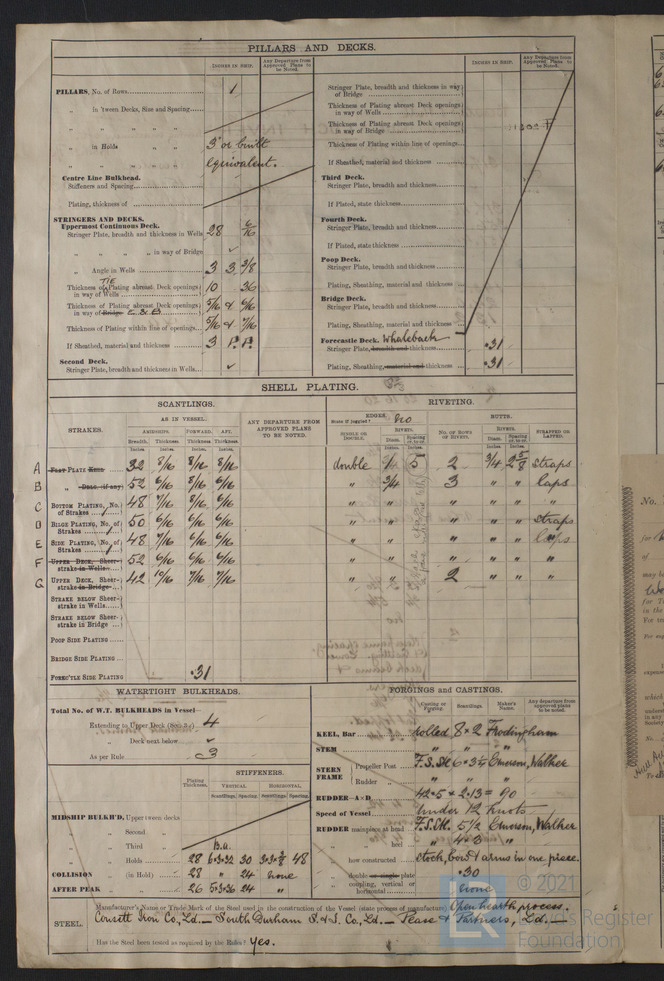 PILLARS AND DECKS.
INCHES IN SHIP.
Any Departure from Approved Plans to be Noted.
INCHES IN SHIP.
Any Departure from Approved Plans to be Noted.
PILLARS, No. of Rows 1
" in 'tween Decks, Size and Spacing
" " " "
" in Holds " " 3" or built
" " " " equivalent.
Centre Line Bulkhead.
Stiffeners and Spacing
Plating, thickness of
STRINGERS AND DECKS.
Uppermost Continuous Deck.
Stringer Plate, breadth and thickness in Wells 28 6/16
" " " " in way of Bridge
" Angle in Wells 3 3 3/8
Thickness of TIE Plating abreast Deck openings in way of Wells 10 36
Thickness of Plating abreast Deck openings in way of Bridge E & B 5/16 & 6/16
Thickness of Plating within line of openings 5/16 & 7/16
If Sheathed, material and thickness 3 P.P.
Second Deck.
Stringer Plate, breadth and thickness in Wells
Stringer Plate, breadth and thickness in way of Bridge
Thickness of Plating abreast Deck openings in way of Wells
Thickness of Plating abreast Deck openings in way of Bridge
Thickness of Plating within line of openings
If Sheathed, material and thickness
Third Deck.
Stringer Plate, breadth and thickness
If Plated, state thickness
Fourth Deck.
Stringer Plate, breadth and thickness
If Plated, state thickness
Poop Deck.
Stringer Plate, breadth and thickness
Plating, Sheathing, material and thickness
Bridge Deck.
Stringer Plate, breadth and thickness
Plating, Sheathing, material and thickness
Forecastle Deck. Whaleback
Stringer Plate, breadth and thickness .31
Plating, Sheathing, material and thickness .31
SHELL PLATING.
SCANTLINGS.
RIVETING.
STRAKES.
AS IN VESSEL.
AMIDSHIPS. FORWARD. AFT.
Breadth. Thickness Thickness Thickness
Inches. Inches. Inches. Inches.
ANY DEPARTURE FROM APPROVED PLANS TO BE NOTED.
EDGES.
State if joggled? No
SINGLE OR DOUBLE.
RIVETS.
Diam. Spacing cr. to cr.
BUTTS.
NO. OF ROWS OF RIVETS.
RIVETS.
Diam. Spacing cr. to cr.
STRAPPED OR LAPPED.
A FLAT PLATE KEEL 32 7/16 8/16 8/16 double 1 5 2 3/4 2 5/8 straps
B " DBLG. (if any) 52 6/16 8/16 6/16 " 3/4 3 " " laps
C BOTTOM PLATING, No. of Strakes 1 48 7/16 8/16 6/16 " " " " " "
D BILGE PLATING, No. of Strakes 1 50 6/16 6/16 6/16 " " " " " straps
E SIDE PLATING, No. of Strakes 1 48 7/16 6/16 6/16 " " " " " laps
F UPPER DECK, Sheerstrake in Wells 52 6/16 6/16 6/16 " " " " " "
G UPPER DECK, Sheerstrake in Bridge 42 10/16 7/16 7/16 " " 2 " " "
STRAKE BELOW Sheerstrake in Wells
STRAKE BELOW Sheerstrake in Bridge
POOP SIDE PLATING
BRIDGE SIDE PLATING
FOREC'TLE SIDE PLATING .31
WATERTIGHT BULKHEADS.
Total No. of W.T. BULKHEADS in Vessel—
Extending to Upper Deck 4
" Deck next below
As per Rule 3
Plating Thickness.
STIFFENERS.
VERTICAL. HORIZONTAL.
Scantlings. Spacing Scantlings. Spacing
MIDSHIP BULKH'D, Upper 'tween decks
" Second "
" Third " B.a.
" Holds 28 6×3×32 30 3×3×3/8 48
COLLISION (in Hold) 28 " 24 none
AFTER PEAK " 26 5×3×36 24 "
FORGINGS and CASTINGS.
Casting or Forging. Scantlings. Maker's Name. Any departure from approved plans to be noted.
KEEL, Bar rolled 8×2 Frodingham
STEM " " "
STERN FRAME
Propeller Post F.S.M. 6×3¼ Emerson, Walker
Rudder " " " "
RUDDER—A×D 42.5 × 2.13 = 90
Speed of Vessel Under 12 knots
RUDDER mainpiece at head F.S.M. 5½ Emerson, Walker
" " heel "
" how constructed stock, bow & arms in one piece.
" double or single plate .30
" coupling, vertical or horizontal none
STEEL.
Manufacturer's Name or Trade Mark of the Steel used in the construction of the Vessel (state process of manufacture) Open hearth process.
Consett Iron Co., Ld. — South Durham S. & I. Co., Ld. — Pease & Partners, Ld. —
Has the Steel been tested as required by the Rules? Yes.
© 2021
Lloyd's Register
Foundation